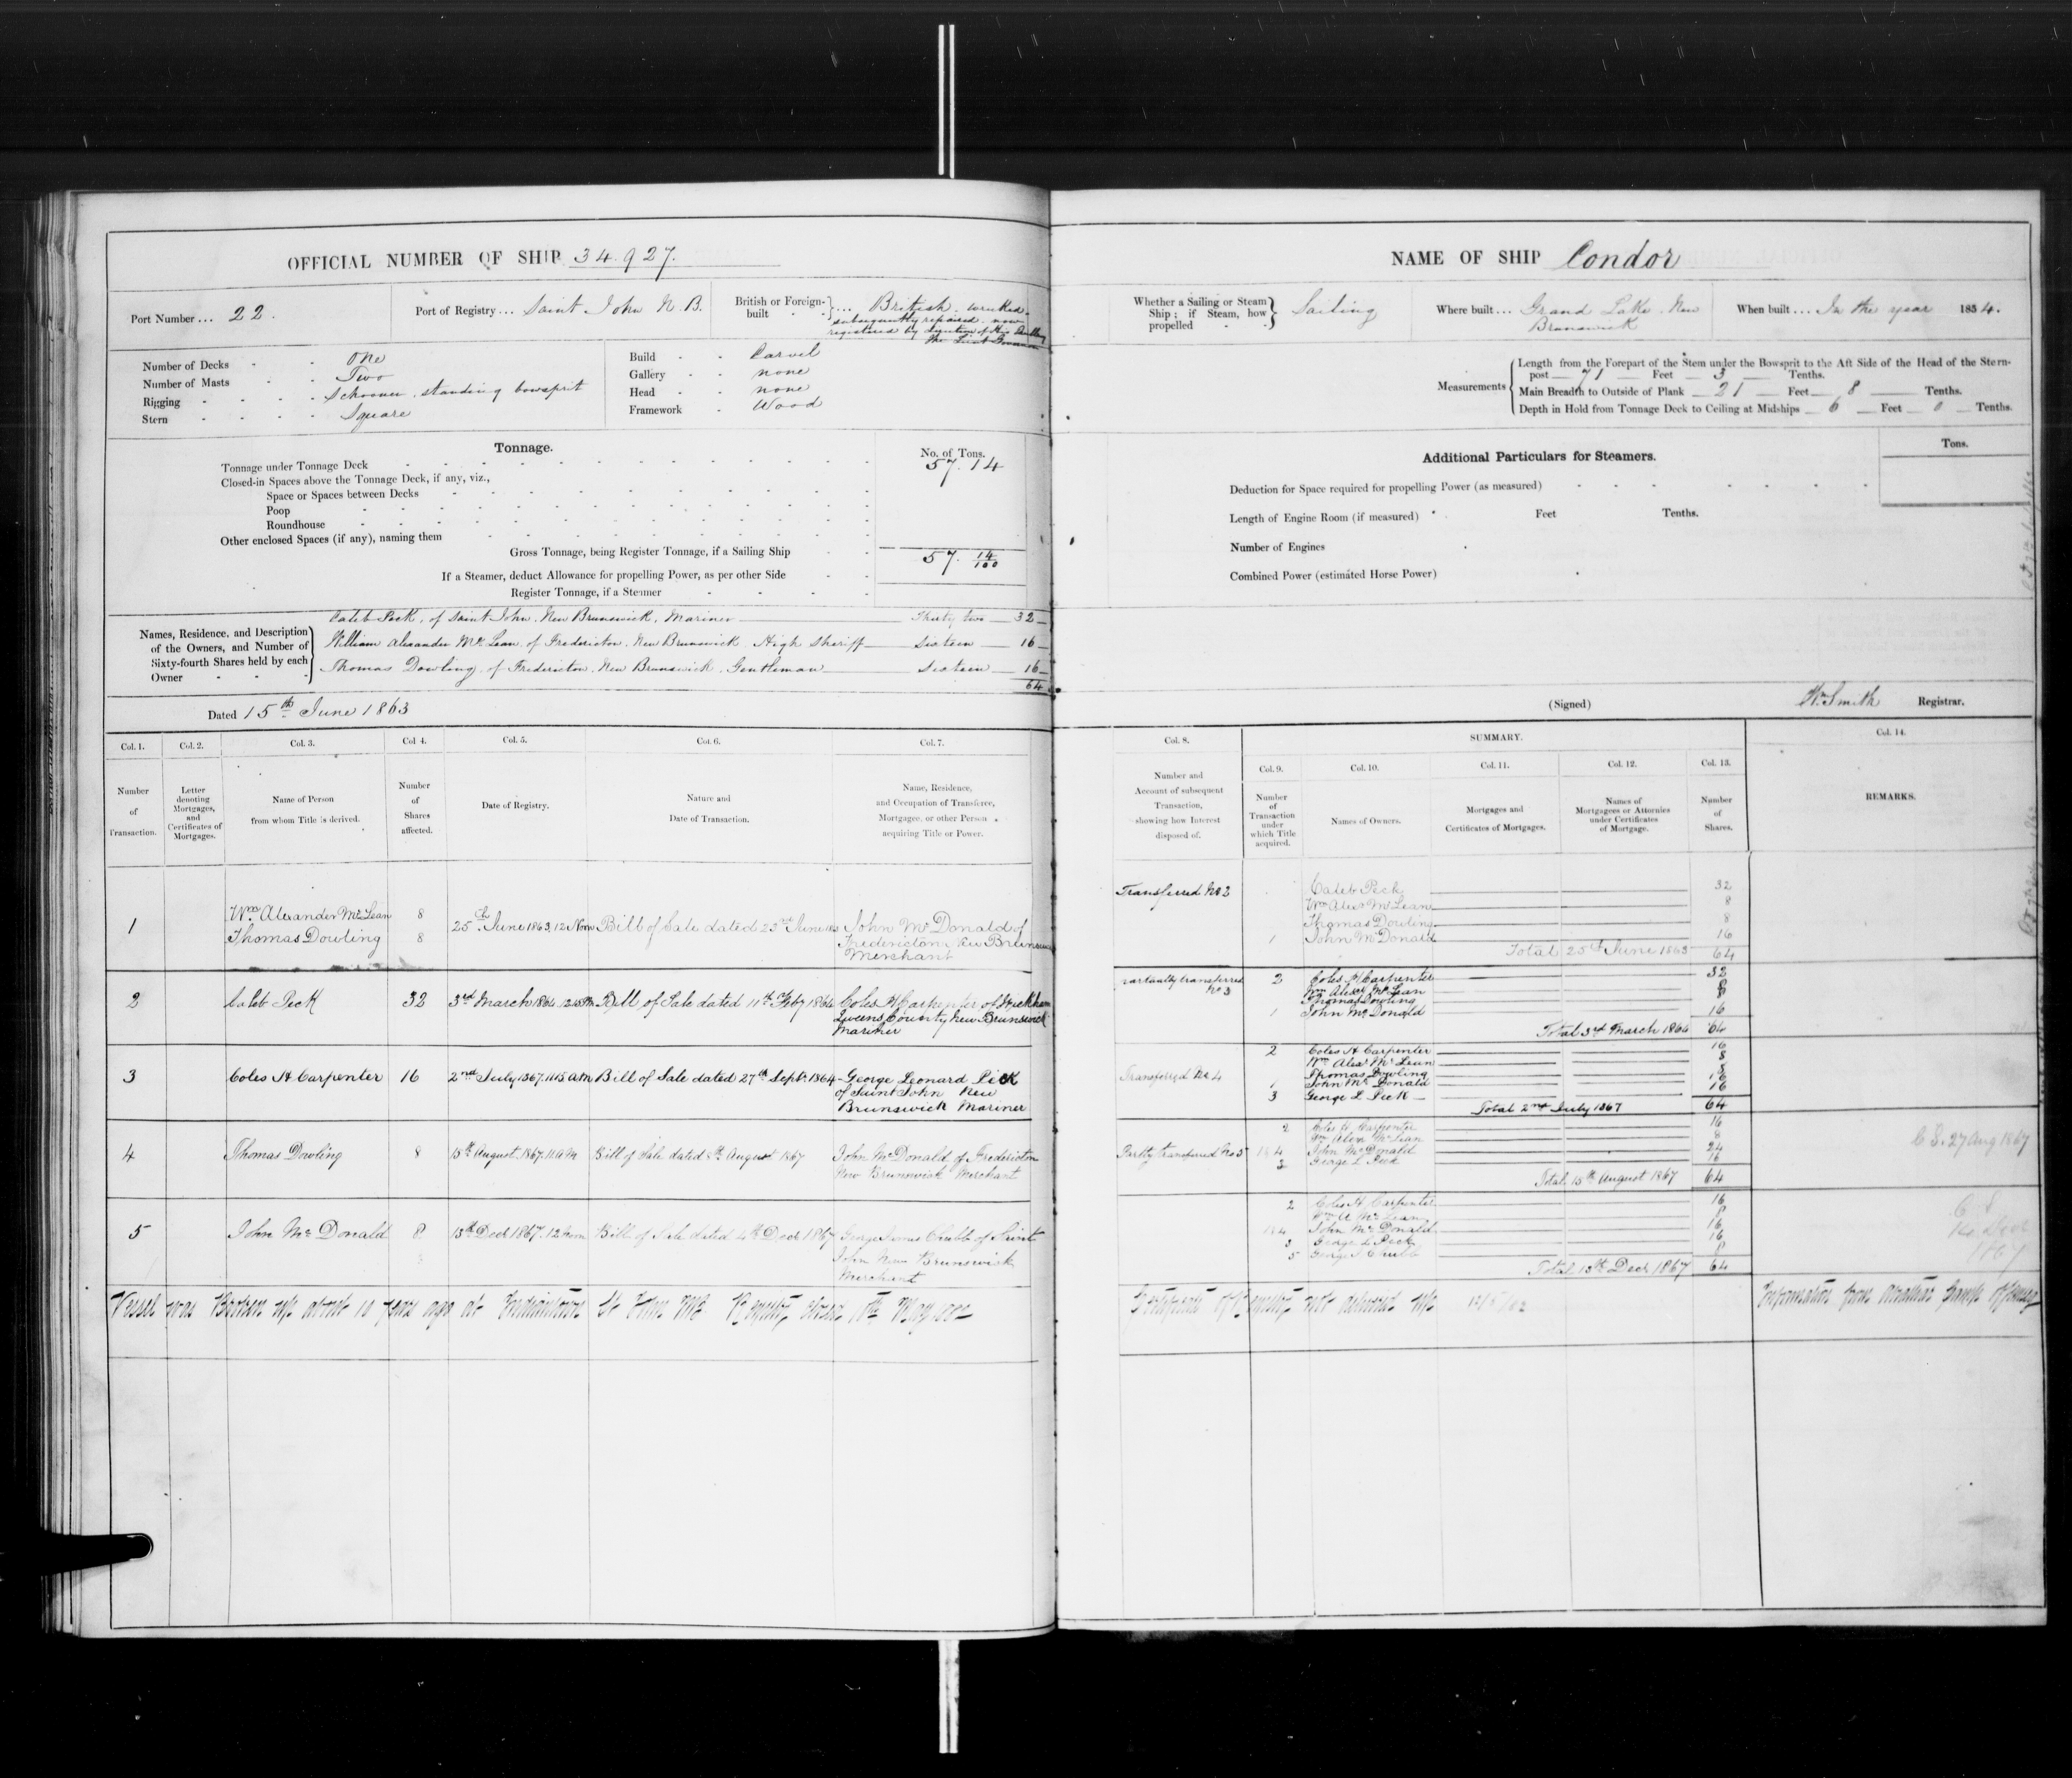 OFFICIAL NUMBER OF SHIP 34.927.
Port Number ... 22.
Port of Registry ... Saint John N.B.
British or Foreign-built } ... British. wrecked.
subsequently repaired. now
registered by direction of His
the Lieut Governor
Number of Decks - - One
Number of Masts - - Two
Rigging - - - - Schooner, standing bowsprit
Stern - - - - Square
Build - - Carvel
Gallery - - none
Head - - none
Framework - Wood
Tonnage.
No. of Tons.
Tonnage under Tonnage Deck 57.14
Closed-in Spaces above the Tonnage Deck, if any, viz.,
Space or Spaces between Decks
Poop
Roundhouse
Other enclosed Spaces (if any), naming them
Gross Tonnage, being Register Tonnage, if a Sailing Ship 57. 14/100
If a Steamer, deduct Allowance for propelling Power, as per other Side
Register Tonnage, if a Steamer
Names, Residence, and Description of the Owners, and Number of Sixty-fourth Shares held by each Owner
Caleb Peck, of Saint John, New Brunswick, Mariner — Thirty two — 32
William Alexander McLean, of Fredericton, New Brunswick High Sheriff — Sixteen — 16
Thomas Dowling, of Fredericton, New Brunswick, Gentleman — Sixteen — 16
64
Dated 15th June 1863
Col. 1. Col. 2. Col. 3. Col 4. Col. 5. Col. 6. Col. 7.
Number of Transaction.
Letter denoting Mortgages, and Certificates of Mortgages.
Name of Person from whom Title is derived.
Number of Shares affected.
Date of Registry.
Nature and Date of Transaction.
Name, Residence, and Occupation of Transferee, Mortgagee, or other Person acquiring Title or Power.
1 Wm. Alexander McLean 8
Thomas Dowling 8
25th June 1863, 12 Noon Bill of Sale dated 23rd June John McDonald of
Fredericton New Brunswick
Merchant
2 Caleb Peck 32 3rd March 1864 Bill of Sale dated 11th Feby 1864 Coles H Carpenter of Wickham
Queens County New Brunswick
Mariner
3 Coles H Carpenter 16 2nd July 1867. 11.15 A.M Bill of Sale dated 27th Septr. 1864 George Leonard Peck
of Saint John New
Brunswick Mariner
4 Thomas Dowling 8 15th August 1867. 11 A M Bill of Sale dated 8th August 1867 John McDonald of Fredericton
New Brunswick Merchant
5 John McDonald 8 13th Decr 1867. 12 noon Bill of Sale dated 4th Decr 1867 George James Chubb of Saint
John New Brunswick
Merchant
Vessel was Broken up about 10 years ago at Indiantown St John NB Registry closed May
NAME OF SHIP Condor
Whether a Sailing or Steam Ship; if Steam, how propelled } Sailing
Where built ... Grand Lake, New
Brunswick
When built ... In the year 1854.
Measurements
Length from the Forepart of the Stem under the Bowsprit to the Aft Side of the Head of the Stern-
post — 71 — Feet — 3 — Tenths.
Main Breadth to Outside of Plank — 21 — Feet — 8 — Tenths.
Depth in Hold from Tonnage Deck to Ceiling at Midships — 6 — Feet — 0 — Tenths.
Additional Particulars for Steamers.
Tons.
Deduction for Space required for propelling Power (as measured)
Length of Engine Room (if measured) Feet Tenths.
Number of Engines
Combined Power (estimated Horse Power)
(Signed) Wm Smith Registrar.
Col. 8. SUMMARY. Col. 14.
Col. 9. Col. 10. Col. 11. Col. 12. Col. 13.
Number and Account of subsequent Transaction, showing how Interest disposed of.
Number of Transaction under which Title acquired.
Names of Owners.
Mortgages and Certificates of Mortgages.
Names of Mortgagees or Attornies under Certificates of Mortgage.
Number of Shares.
REMARKS.
Transferred No 2
Caleb Peck 32
Wm Alexr McLean 8
Thomas Dowling 8
1 John McDonald 16
Total 25th June 1863 64
Partially transferred No 3
2 Coles H Carpenter 32
Wm Alexr McLean 8
Thomas Dowling 8
1 John McDonald 16
Total 3rd March 1864 64
Transferred No 4
2 Coles H Carpenter 16
Wm Alexr McLean 8
Thomas Dowling 8
1 John McDonald 16
3 George L Peck 16
Total 2nd July 1867 64
Partly transferred No 5
2 Coles H Carpenter 16
Wm Alexr McLean 8
1&4 John McDonald 24
3 George L Peck 16
Total 15th August 1867 64
C S. 27 Aug 1867
2 Coles H Carpenter 16
Wm A McLean 8
1&4 John McDonald 16
3 George L Peck 16
5 George J Chubb 8
Total 13th Decr 1867 64
C S
14 Decr
1867
Certificate of Registry not delivered up
Information from